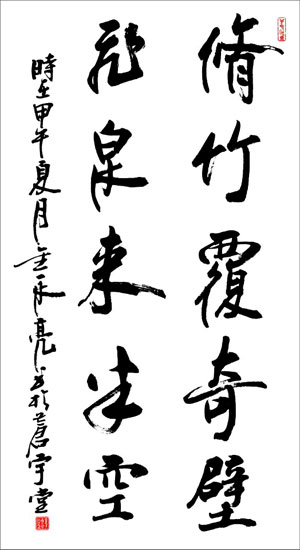 脩竹覆奇壁
飛泉来半空
時在甲午夏月金永亮書於蒼宇堂